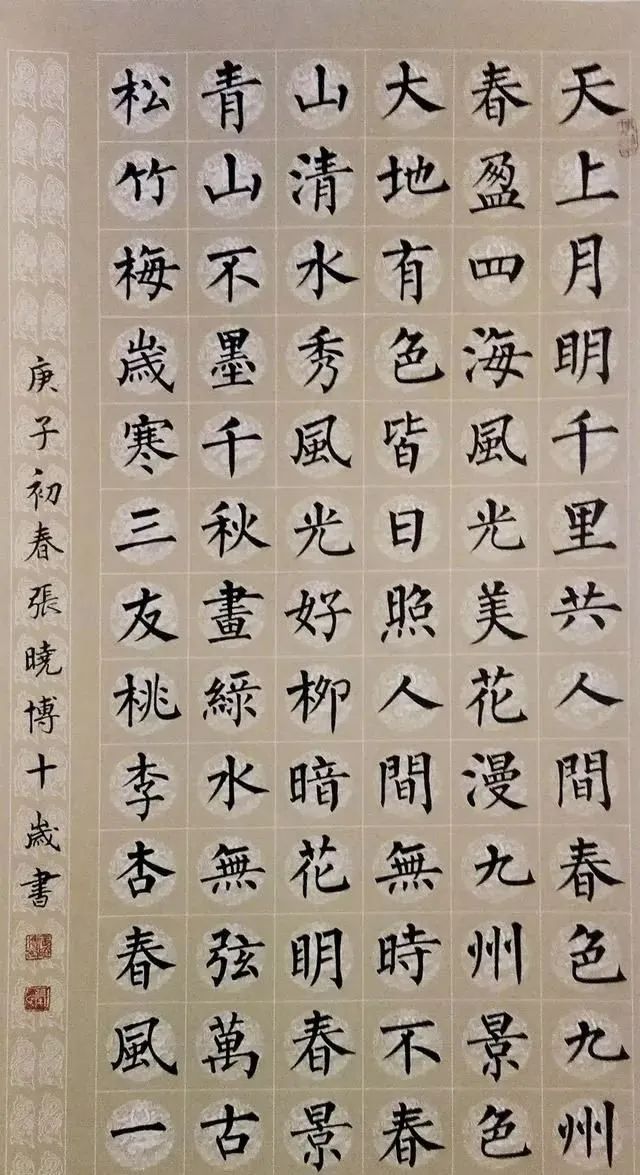 天上月明千里共人間春色九州
春盈四海風光美花漫九州景色
大地有色皆日照人間無時不春
山清水秀風光好栁暗花明春景
青山不墨千秋畫綠水無弦萬古
松竹梅歲寒三友桃李杏春風一
庚子初春張曉博十歲書